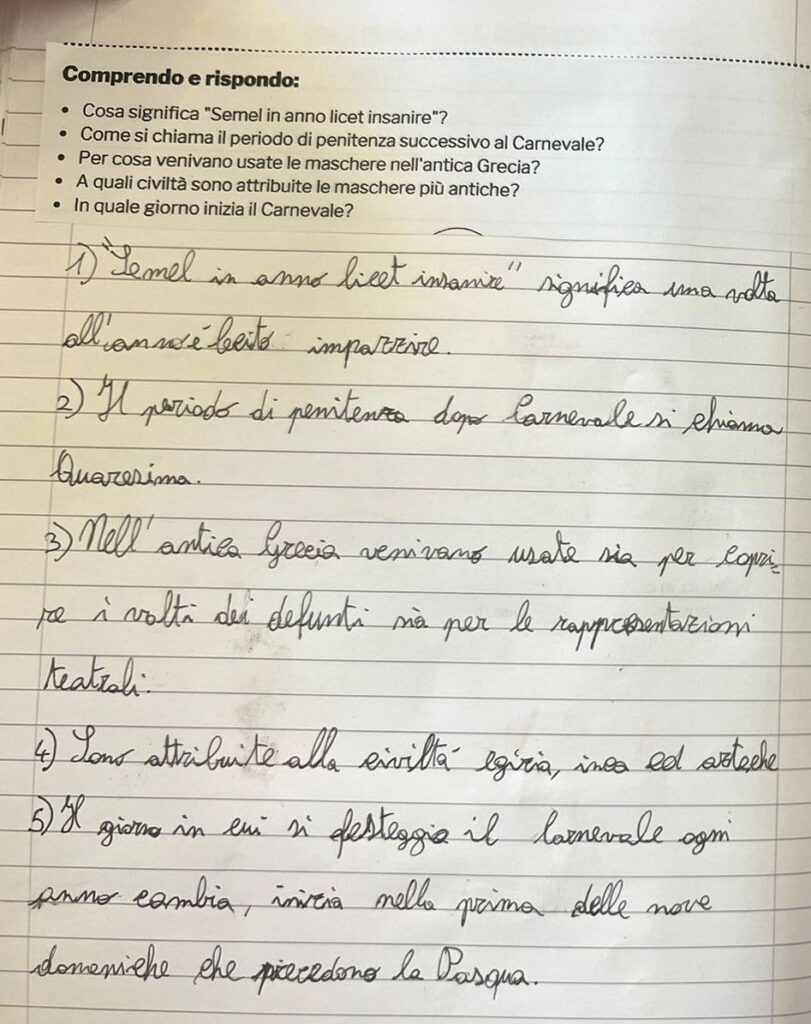 Comprendo e rispondo:
• Cosa significa "Semel in anno licet insanire"?
• Come si chiama il periodo di penitenza successivo al Carnevale?
• Per cosa venivano usate le maschere nell'antica Grecia?
• A quali civiltà sono attribuite le maschere più antiche?
• In quale giorno inizia il Carnevale?
1) "Semel in anno licet insanire" significa una volta
all'anno è lecito impazzire.
2) Il periodo di penitenza dopo Carnevale si chiama
Quaresima.
3) Nell'antica Grecia venivano usate sia per copri=
re i volti dei defunti sia per le rappresentazioni
teatrali.
4) Sono attribuite alla civiltà egizia, inca ed azteche
5) Il giorno in cui si festeggia il Carnevale ogni
anno cambia, inizia nella prima delle nove
domeniche che precedono la Pasqua.